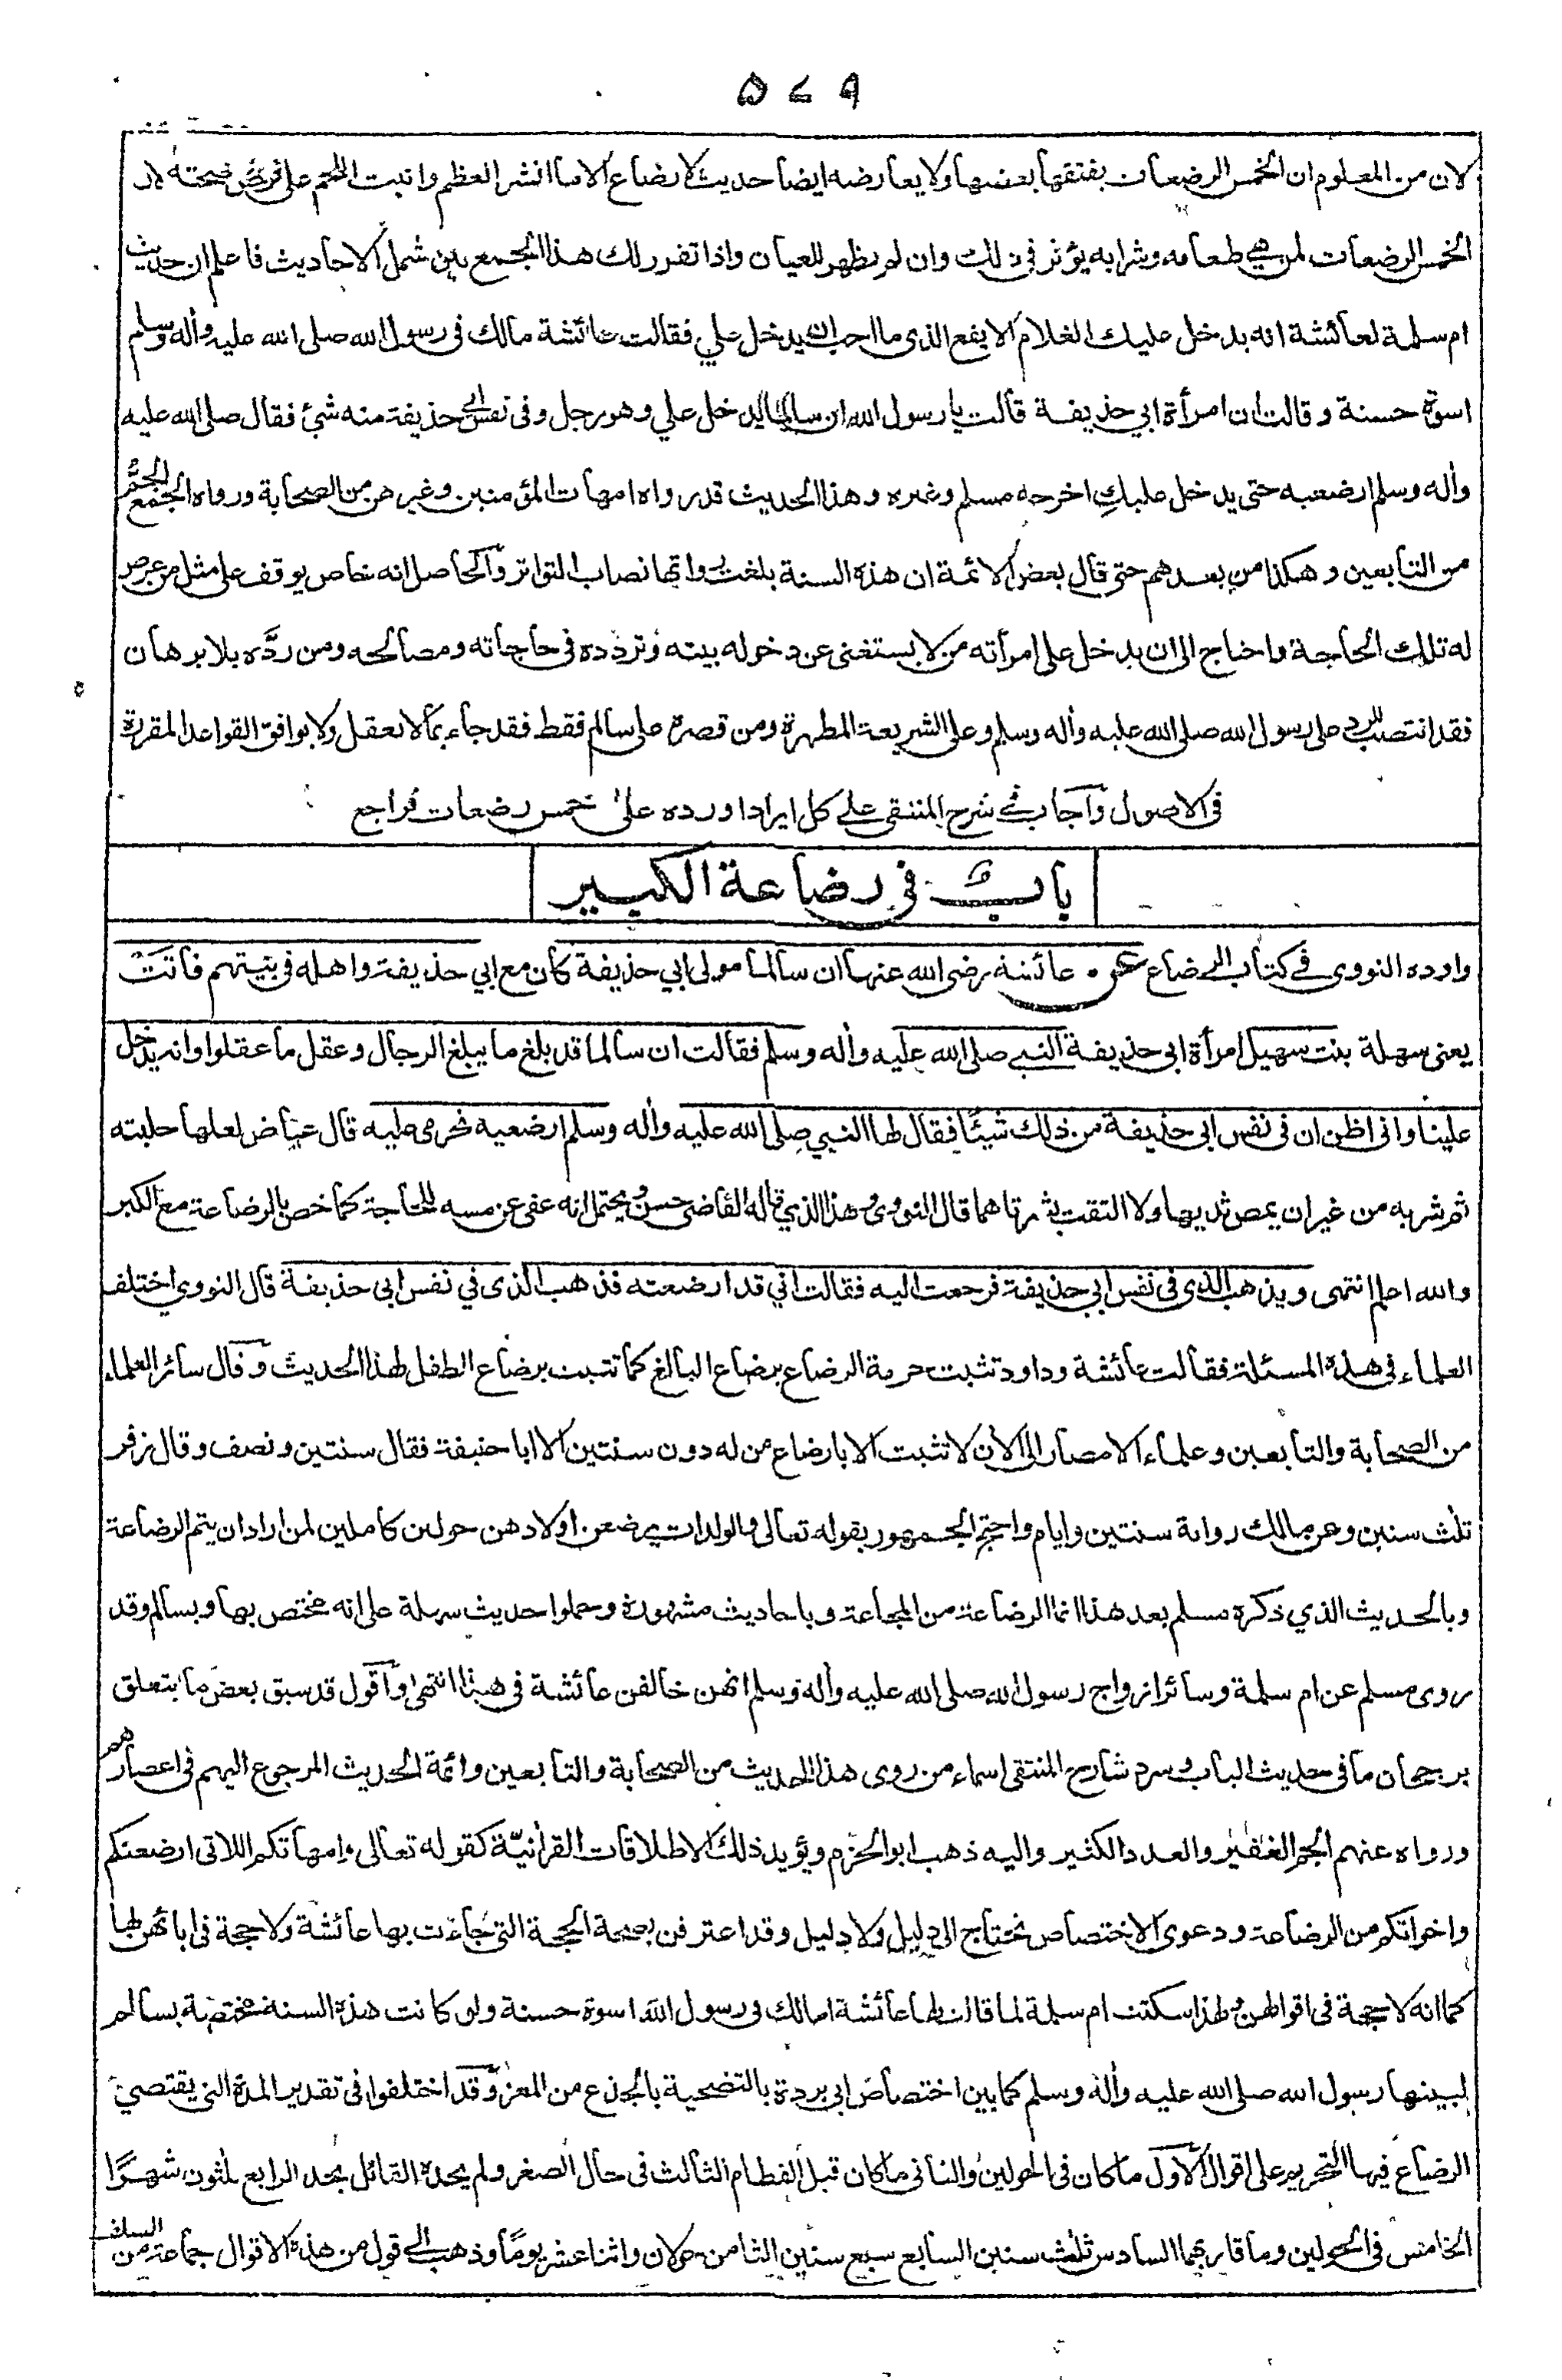 ٥٧٩
لان من المعلوم ان الخمس الرضعات يفتقها بعضها ولا يعارضه ايضا حديث لا رضاع الا ما انشر العظم وانبت اللحم على فرض صحته لان
الخمس الرضعات لمن هي طعامه وشرابه يؤثر في ذلك وان لم يظهر للعيان واذا تقرر لك هذا الجمع بين شمل الاحاديث فاعلم ان حديث
ام سلمة لعائشة انه يدخل عليك الغلام الايفع الذي ما احب ان يدخل علي فقالت عائشة مالك في رسول الله صلى الله عليه وأله وسلم
اسوة حسنة وقالت ان امرأة ابي حذيفة قالت يا رسول الله ان سالما يدخل علي وهو رجل وفي نفس ابي حذيفة منه شيئ فقال صلى الله عليه
وأله وسلم ارضعيه حتى يدخل عليكِ اخرجه مسلم وغيره وهذا الحديث قد رواه امهات المؤمنين وغيرهن من الصحابة ورواه الجمع الجم
من التابعين وهكذا من بعدهم حتى قال بعض الائمة ان هذه السنة بلغت رواتها نصاب التواتر والحاصل انه خاص يوقف على مثل من عرض
له تلك الحاجة واحتاج الى ان يدخل على امرأته من لا يستغنى عن دخوله بيته وتردده في حاجاته ومصالحه ومن ردّه بلا برهان
فقد انتصب للرد على رسول الله صلى الله عليه وأله وسلم وعلى الشريعة المطهرة ومن قصره على سالم فقط فقد جاء بما لا يعقل ولا يوافق القواعد المقررة
في الاصول وأجاب في شرح المنتقى على كل ايراد اورده على خمس رضعات فراجع
باب في رضاعة الكبير
واورده النووي في كتاب الرضاع عن عائشة رضي الله عنها ان سالما مولى ابي حذيفة كان مع ابي حذيفة واهله في بيتهم فأتت
يعني سهلة بنت سهيل امرأة ابي حذيفة النبي صلى الله عليه وأله وسلم فقالت ان سالما قد بلغ ما يبلغ الرجال وعقل ما عقلوا وانه يدخل
علينا واني اظن ان في نفس ابي حذيفة من ذلك شيئًا فقال لها النبي صلى الله عليه وأله وسلم ارضعيه تحرمي عليه قال عياض لعلها حلبته
ثم شربه من غير ان يمص ثديها ولا التقت بشرتاهما قال النووي وهذا الذي قاله القاضي حسن ويحتمل انه عفي عن مسه للحاجة كما خص بالرضاعة مع الكبر
والله اعلم انتهى ويذهب الذي في نفس ابي حذيفة فرجعت اليه فقالت اني قد ارضعته فذهب الذي في نفس ابي حذيفة قال النووي اختلف
العلماء في هذه المسئلة فقالت عائشة وداود تثبت حرمة الرضاع برضاع البالغ كما تثبت برضاع الطفل لهذا الحديث وقال سائر العلماء
من الصحابة والتابعين وعلماء الامصار الى الأن لا تثبت الا بارضاع من له دون سنتين الا ابا حنيفة فقال سنتين ونصف وقال زفر
ثلث سنين وعن مالك رواية سنتين وايام واحتج الجمهور بقوله تعالى والوالدات يرضعن اولادهن حولين كاملين لمن اراد ان يتم الرضاعة
وبالحديث الذي ذكره مسلم بعد هذا انما الرضاعة من المجاعة وباحاديث مشهورة وحملوا حديث سهلة على انه مختص بها وبسالم وقد
روى مسلم عن ام سلمة وسائر ازواج رسول الله صلى الله عليه وأله وسلم انهن خالفن عائشة في هذا انتهى وأقول قد سبق بعض ما يتعلق
برجحان ما في حديث الباب وسرد شارح المنتقى اسماء من روى هذا الحديث من الصحابة والتابعين وائمة الحديث المرجوع اليهم في اعصارهم
ورواه عنهم الجم الغفير والعدد الكثير واليه ذهب ابو الحزم ويؤيد ذلك الاطلاقات القرأنيّة كقوله تعالى وامهاتكم اللاتي ارضعنكم
واخواتكم من الرضاعة ودعوى الاختصاص تحتاج الى دليل ولا دليل وقد اعترفن بصحة الحجة التي جاءت بها عائشة ولا حجة في ابائهن لها
كما انه لا حجة في اقوالهن ولهذا سكتت ام سلمة لما قالت لها عائشة اما لك في رسول الله اسوة حسنة ولو كانت هذه السنة مختصة بسالم
لبينها رسول الله صلى الله عليه وأله وسلم كما بين اختصاص ابي بردة بالتضحية بالجذع من المعز وقد اختلفوا في تقدير المدة التي يقتضي
الرضاع فيها التحريم على اقوال الأول ما كان في الحولين والثاني ما كان قبل الفطام الثالث في حال الصغر ولم يحده القائل بحد الرابع ثلثون شهرًا
الخامس في الحولين وما قاربهما السادس ثلث سنين السابع سبع سنين الثامن حولان واثنا عشر يومًا وذهب الى قول من هذه الاقوال جماعة من السلف